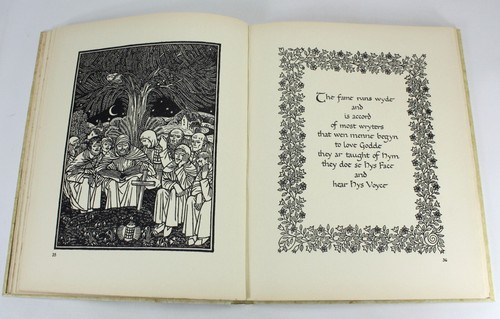 The fame runs wyde
and
is accord
of most wryters
that wen menne begyn
to love Godde
they ar taught of Hym
they doe se Hys Face
and
hear Hys Voyce
35
36